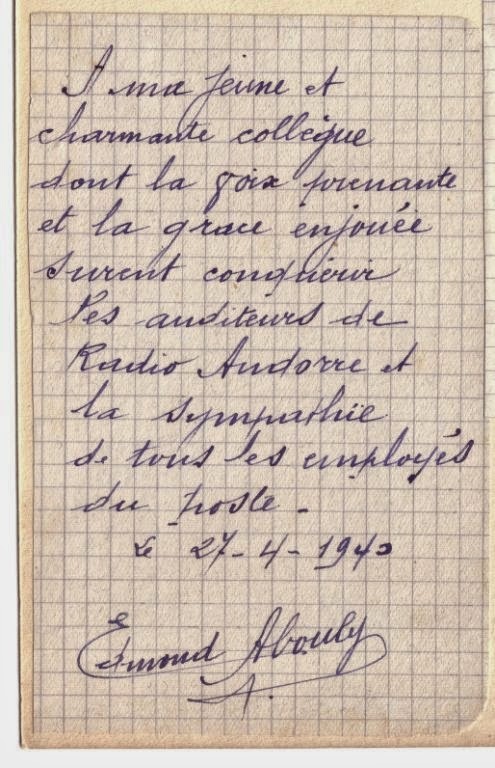 A ma jeune et
charmante collègue
dont la voix prenante
et la grace enjouée
surent conquérir
les auditeurs de
Radio Andorre et
la sympathie
de tous les employés
du poste -
Le 27-4-1940
Edmond Abouly